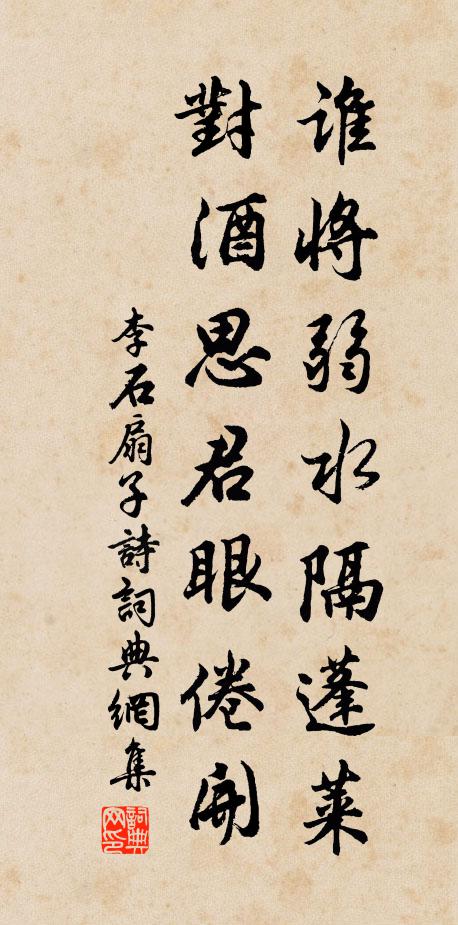 誰將弱水隔蓬萊
對酒思君眼倦開
李石扇子詩詞典網集
詞典網印